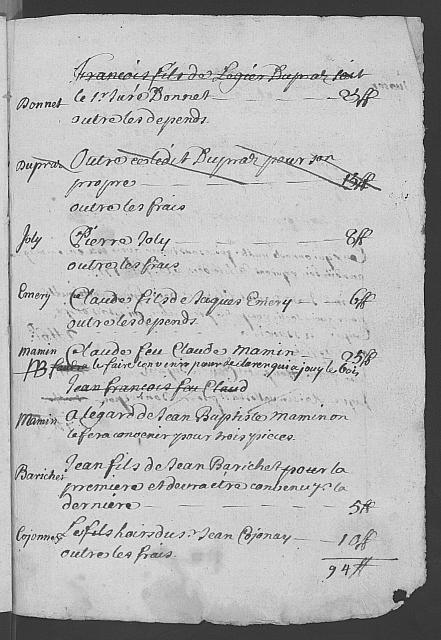 François fils de Legier Dupraz soit
Bonnet le 1r Juré Bonnet 25ff
outre les depends
Dupraz Outre ce ledit Dupraz pour son
propre 15ff
outre les frais
Joly Pierre Joly 8ff
outre les frais
Emery Claude fils de Jaques Emery 6ff
outre les depends
Mamin Claude feu Claude Mamin 25ff
NB faudra le faire convenir pour de la renqui a jouy le bois
Jean françois feu Claud
Mamin a legard de Jean Baptiste Mamin on
le fera convenir pour trois pieces
Barichet Jean fils de Jean Barichet pour la
premiere et devra etre convenu pr la
derniere 5ff
Cojonnex Les fils hoirs du sr Jean Cojonay 10ff
outre les frais
94ff